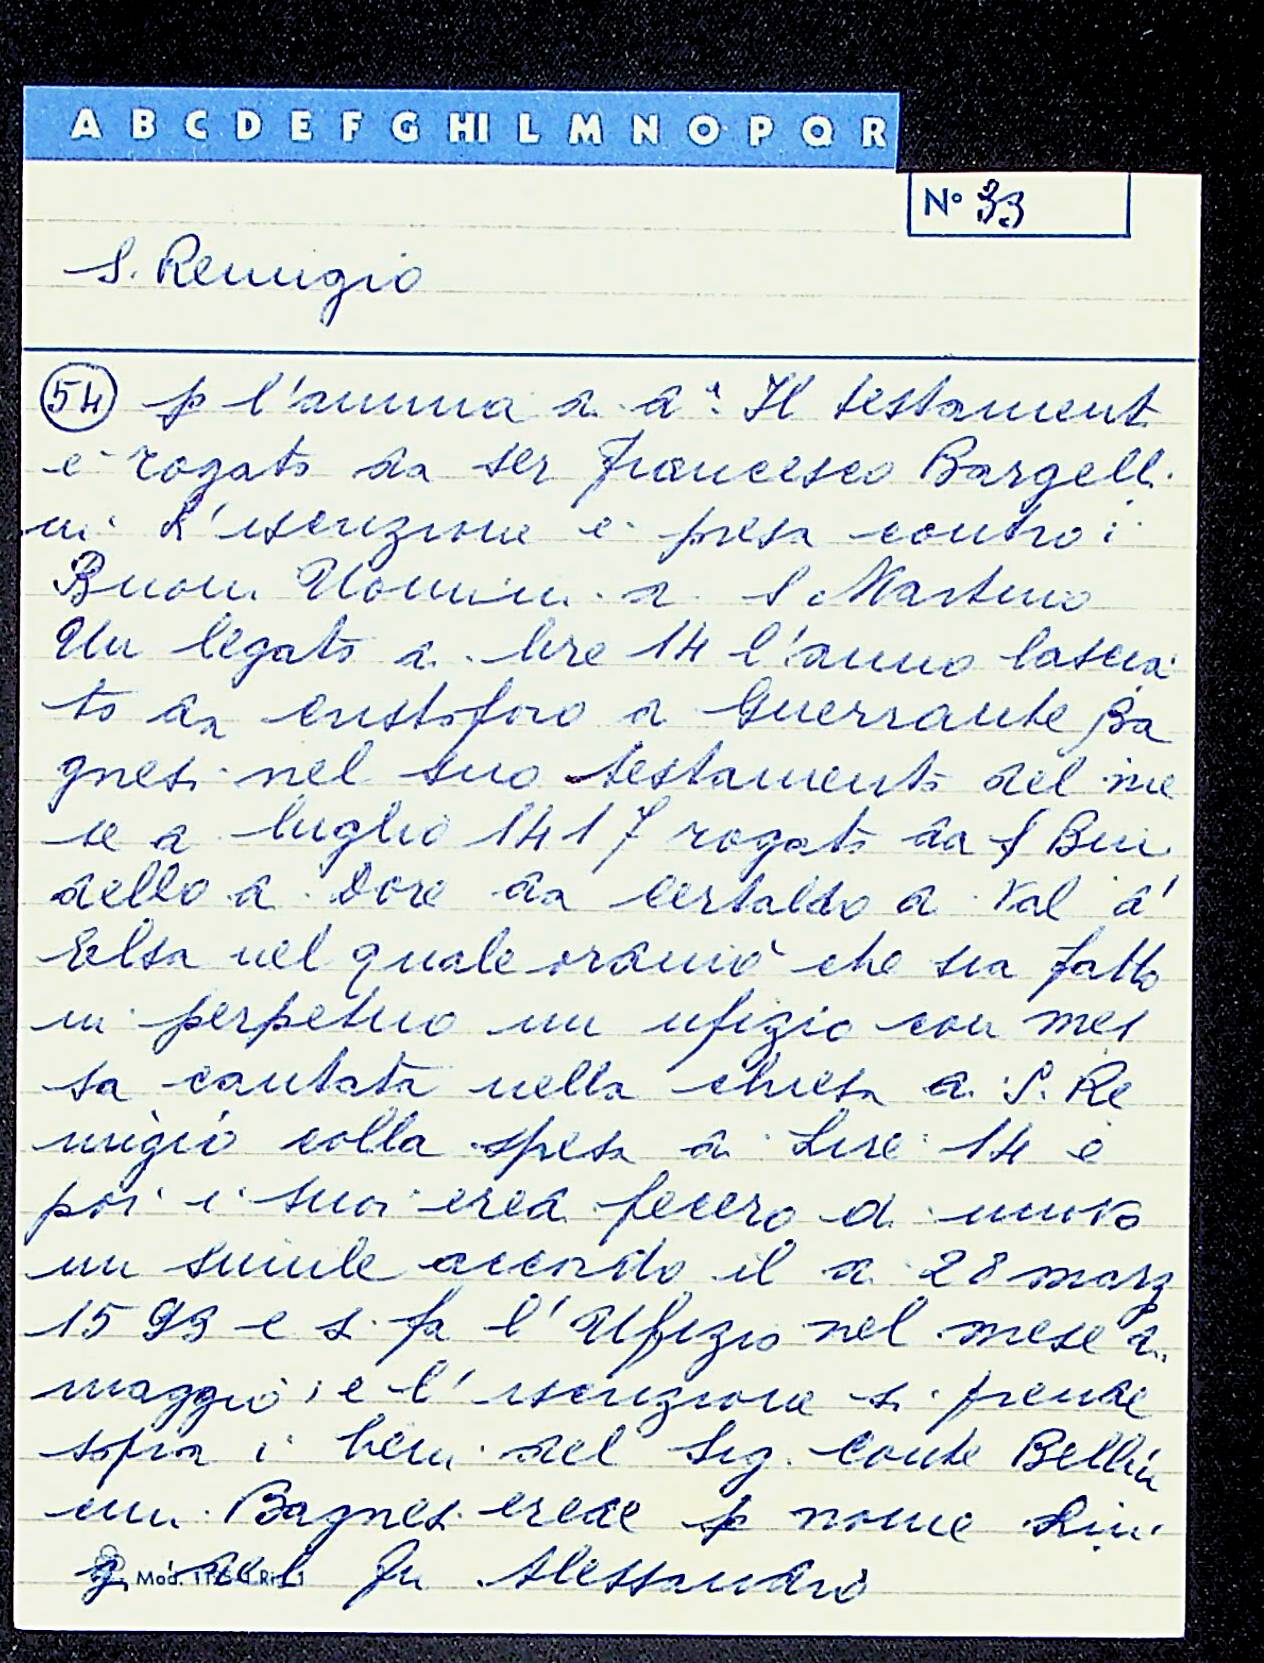 A B C D E F G HI L M N O P Q R
N° 33
S. Remigio
54 p l'anima di d° Il testament
è rogato da ser Francesco Bargelli
ni L'iscrizione è presa contro i
Buoni Uomini di S Martino
Un legato di lire 14 l'anno lascia
to da Cristoforo di Guerrante Ba
gnesi nel suo testamento del me
se di luglio 1417 rogato da S Bin
dello di Dore da Certaldo di Val d'
Elsa nel quale ordinò che sia fatto
in perpetuo un ufizio con mes
sa cantata nella chiesa di S. Re
migio colla spesa di Lire 14 e
poi i suoi eredi fecero di nuovo
un simile accordo il dì 28 marz
1599 e si fa l'Uffizio nel mese di
maggio: e l'iscrizione si prende
sopra i beni del Sig. Conte Bellin
cini Bagnesi erede p nome
del fu Alessandro
Mod.